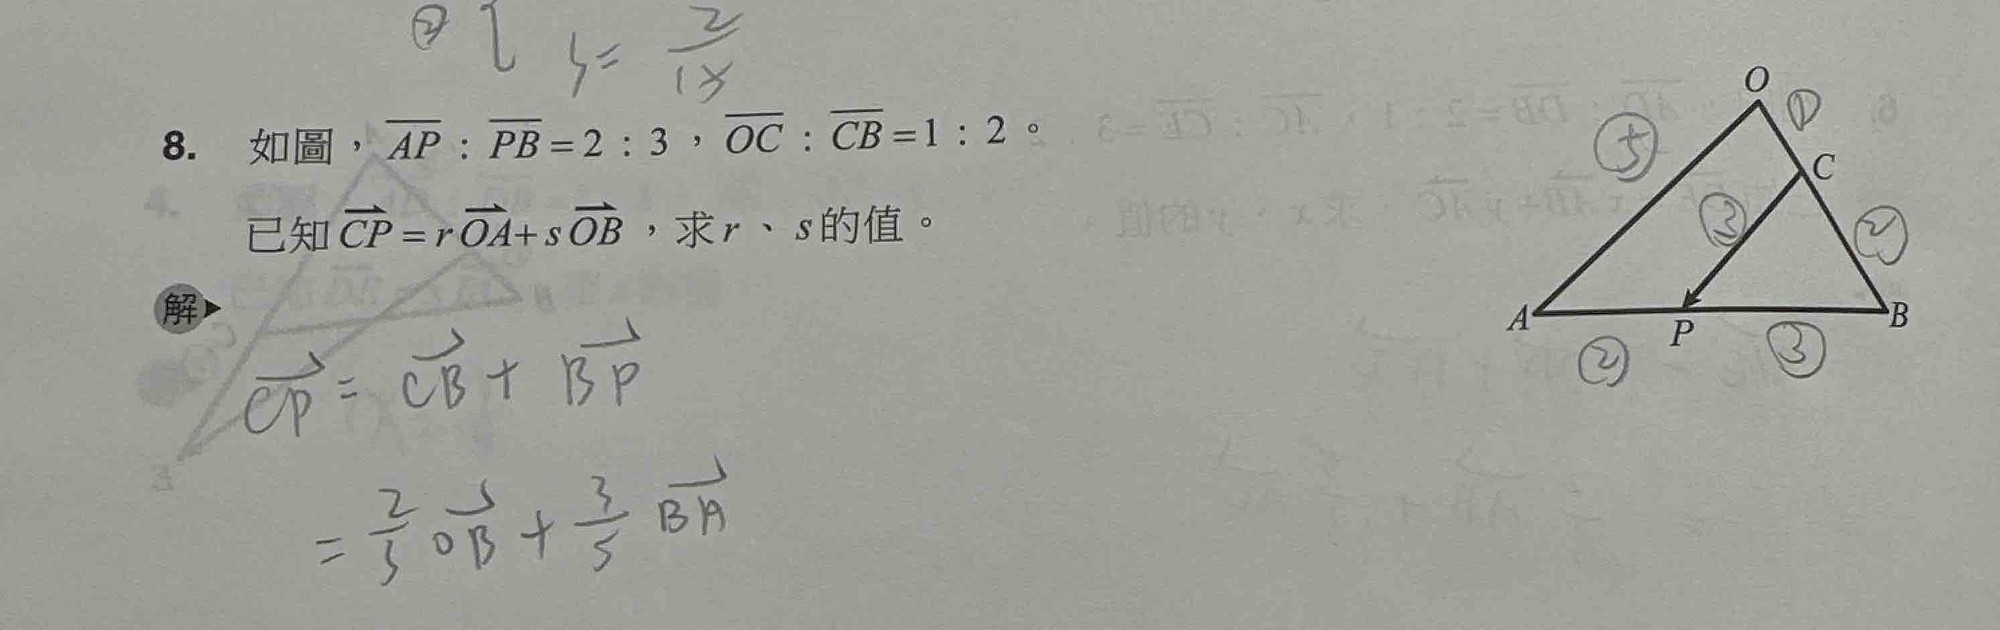 ② { y = 2/15
8. 如圖，AP : PB = 2 : 3，OC : CB = 1 : 2。
已知 CP = r OA + s OB，求 r、s 的值。
解
CP = CB + BP
= 2/3 OB + 3/5 BA
O ①
⑤ C
③ ②
A P B
② ③